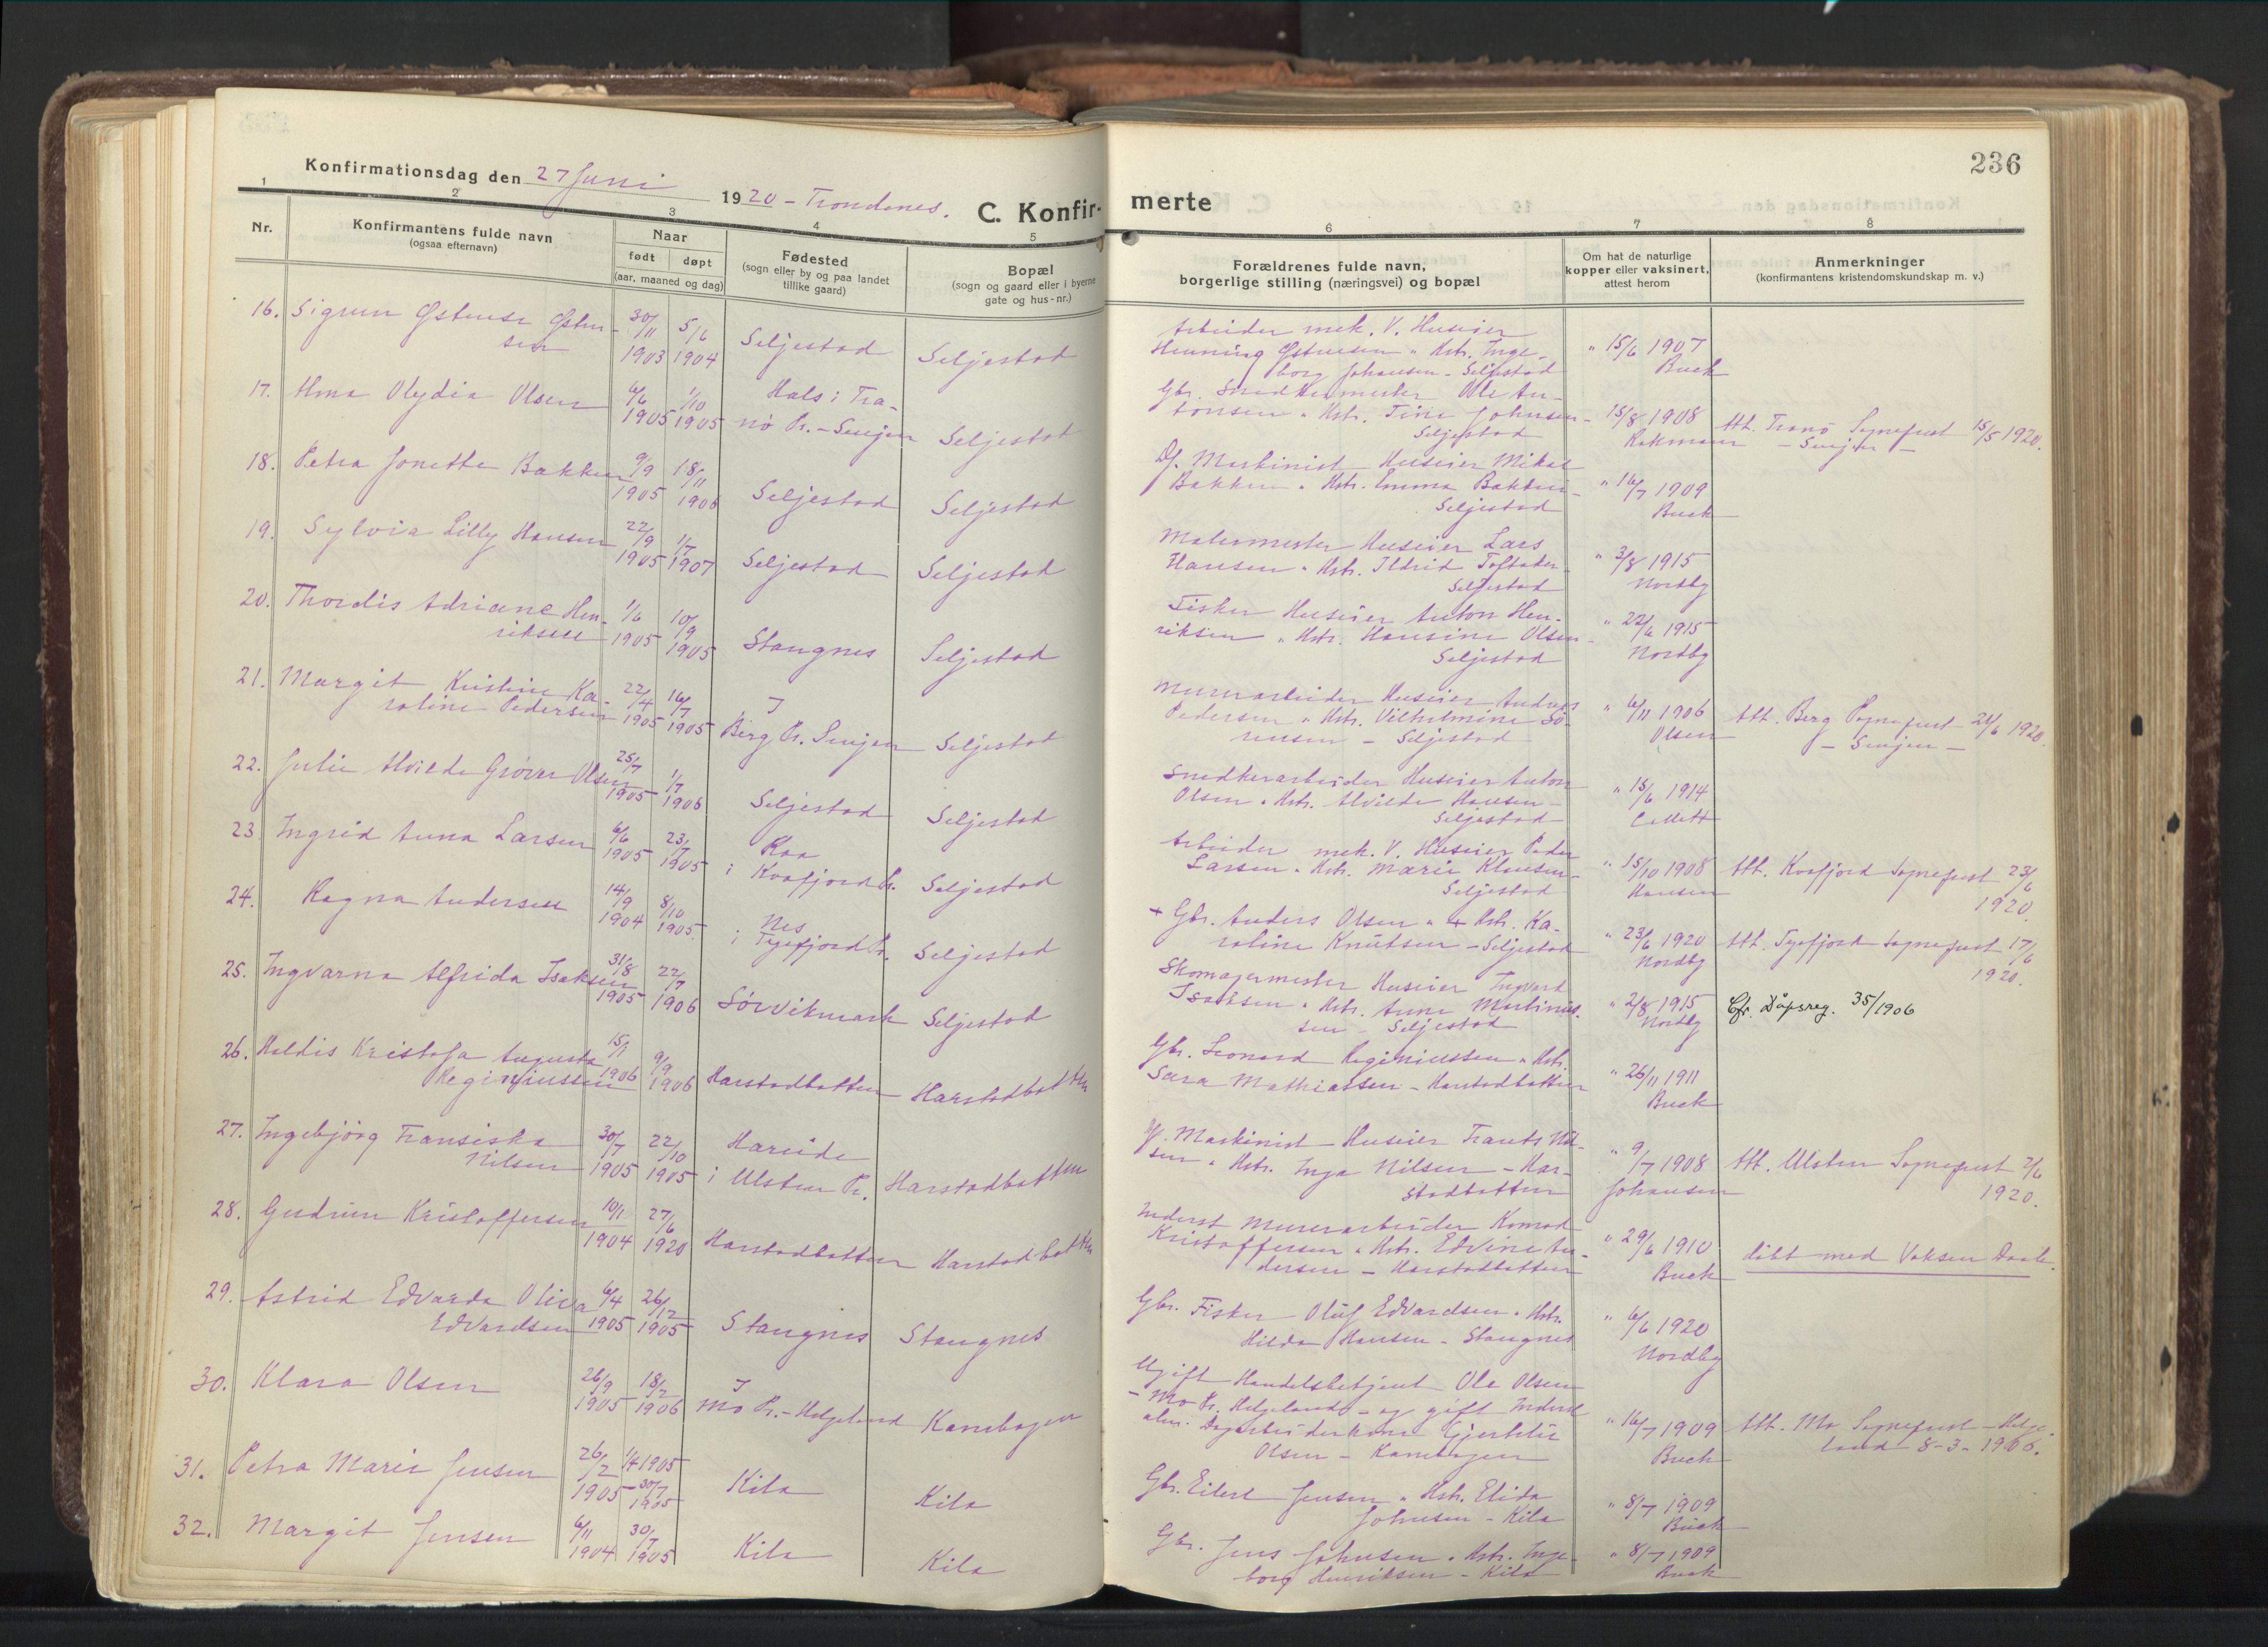 236
Konfirmationsdag den 27 Juni 1920 - Trondenes.
C. Konfirmerte
1 2 3 4 5 6 7 8
Nr.
Konfirmantens fulde navn
(ogsaa efternavn)
Naar
født døpt
(aar, maaned og dag)
Fødested
(sogn eller by og paa landet
tillike gaard)
Bopæl
(sogn og gaard eller i byerne
gate og hus-nr.)
Forældrenes fulde navn,
borgerlige stilling (næringsvei) og bopæl
Om hat de naturlige
kopper eller vaksinert,
attest herom
Anmerkninger
(konfirmantens kristendomskundskap m. v.)
16. Sigrun Østense Østensen 30/11 1903 5/6 1904 Seljestad Seljestad
Arbeider mek. V. Huseier
Henning Østensen " Hstr. Inge-
borg Johansen - Seljestad
" 15/6 1907
Buck
17. Olydia Olsen 6/6 1905 1/10 1905 Hals i Tra-
nø Pr. - Senjen Seljestad
Gbr. Snedkermester Ole An-
tonsen " Hstr. Tine Johnsen -
Seljestad
15/8 1908
Att. Tranø Sognepræst 15/5 1920.
- Senjen -
18. Petra Jonette Bakken 9/9 1905 18/11 1906 Seljestad Seljestad
Df. Maskinist Huseier Mikal
Bakken " Hstr. Emma Bakken -
Seljestad
" 16/7 1909
Buck
19. Sylvia Lilly Hansen 22/9 1905 1/7 1907 Seljestad Seljestad
Malermester Huseier Lars
Hansen " Hstr. Ildrid -
Seljestad
" 3/8 1915
Nordby
20. Thordis Adriane Hen-
riksen 1/6 1905 10/9 1905 Stangnes Seljestad
Fisker Huseier Anton Hen-
riksen " Hstr. Hansine Olsen -
Seljestad
" 22/6 1915
Nordby
21. Margit Kristine Ka-
roline Pedersen 22/4 1905 16/7 1905 I
Berg Pr. Senjen Seljestad
Murerarbeider Huseier Andreas
Pedersen " Hstr. Vilhelmine Sø-
rensen - Seljestad
" 6/11 1906
Olsen
Att. Berg Sognepræst 24/6 1920.
- Senjen -
22. Julie Alvilde Grøver Olsen 25/7 1905 1/7 1906 Seljestad Seljestad
Snedkerarbeider Huseier Anton
Olsen " Hstr. Alvilde Hansen -
Seljestad
" 15/6 1914
23. Ingrid Anna Larsen 6/6 1905 23/7 1905 Raa
i Kvæfjord Pr. Seljestad
Arbeider mek. V. Huseier Peder
Larsen " Hstr. Marie Klausen -
Seljestad
" 15/10 1908
Hansen
Att. Kvæfjord Sognepræst 23/6
1920.
24. Ragna Andersen 14/9 1904 8/10 1905 Nes
i Tysfjord Pr. Seljestad
+ Gbr. Anders Olsen " + Hstr. Ka-
roline Knutsen - Seljestad
" 23/6 1920
Nordby
Att. Tysfjord Sognepræst 17/6
1920.
25. Ingvarna Alfrida Isaksen 31/8 1905 22/7 1906 Sørvikmark Seljestad
Skomagermester Huseier Ingvard
Isaksen " Hstr. Anne Martinus-
sen - Seljestad
" 2/8 1915
Nordby
Cfr. Dåpsreg. 35/1906
26. Haldis Kristofa Augusta
Reginiussen 15/1 1906 9/9 1906 Harstadbotten Harstadbotten
Gbr. Leonard Reginiussen " Hstr.
Sara Mathiassen - Harstadbotten
" 26/11 1911
Buck
27. Ingebjørg Fransiska
Nilsen 30/7 1905 22/10 1905 Hareide
i Ulsten Pr. Harstadbotten
Maskinist - Huseier Frants Nil-
sen " Hstr. Inga Nilsen - Har-
stadbotten
" 9/7 1908
Johansen
Att. Ulsten Sognepræst 2/6
1920.
28. Gudrun Kristoffersen 10/1 1904 27/6 1920 Harstadbotten Harstadbotten
Inderst Murerarbeider Konrad
Kristoffersen " Hstr. Edvine An-
dersen - Harstadbotten
" 29/6 1910
Buck
døbt med Voksen Daab.
29. Astrid Edvarda Oliva
Edvardsen 6/4 1905 26/12 1905 Stangnes Stangnes
Gbr. Fisker Oluf Edvardsen " Hstr.
Hilda Hansen - Stangnes
" 6/6 1920
Nordby
30. Klara Olsen 26/9 1905 18/2 1906 I
Mo Pr. - Helgeland Kanebogen
Ugift Handelsbetjent Ole Olsen
- Mo Pr. Helgeland - og gift Inderst
alm. Dagarbeiderkone
Olsen - Kanebogen
" 16/7 1909
Buck
Att. Mo Sognepræst - Helge-
land 8-3-1906.
31. Petra Marie Jensen 26/2 1905 1/4 1905 - 30/7 1905 Kila Kila
Gbr. Eilert Jensen " Hstr. Elida
Johnsen - Kila
" 8/7 1909
Buck
32. Margit Jensen 6/11 1904 30/7 1905 Kila Kila
Gbr. Jens Johnsen " Hstr. Inge-
borg Henriksen - Kila
" 8/7 1909
Buck